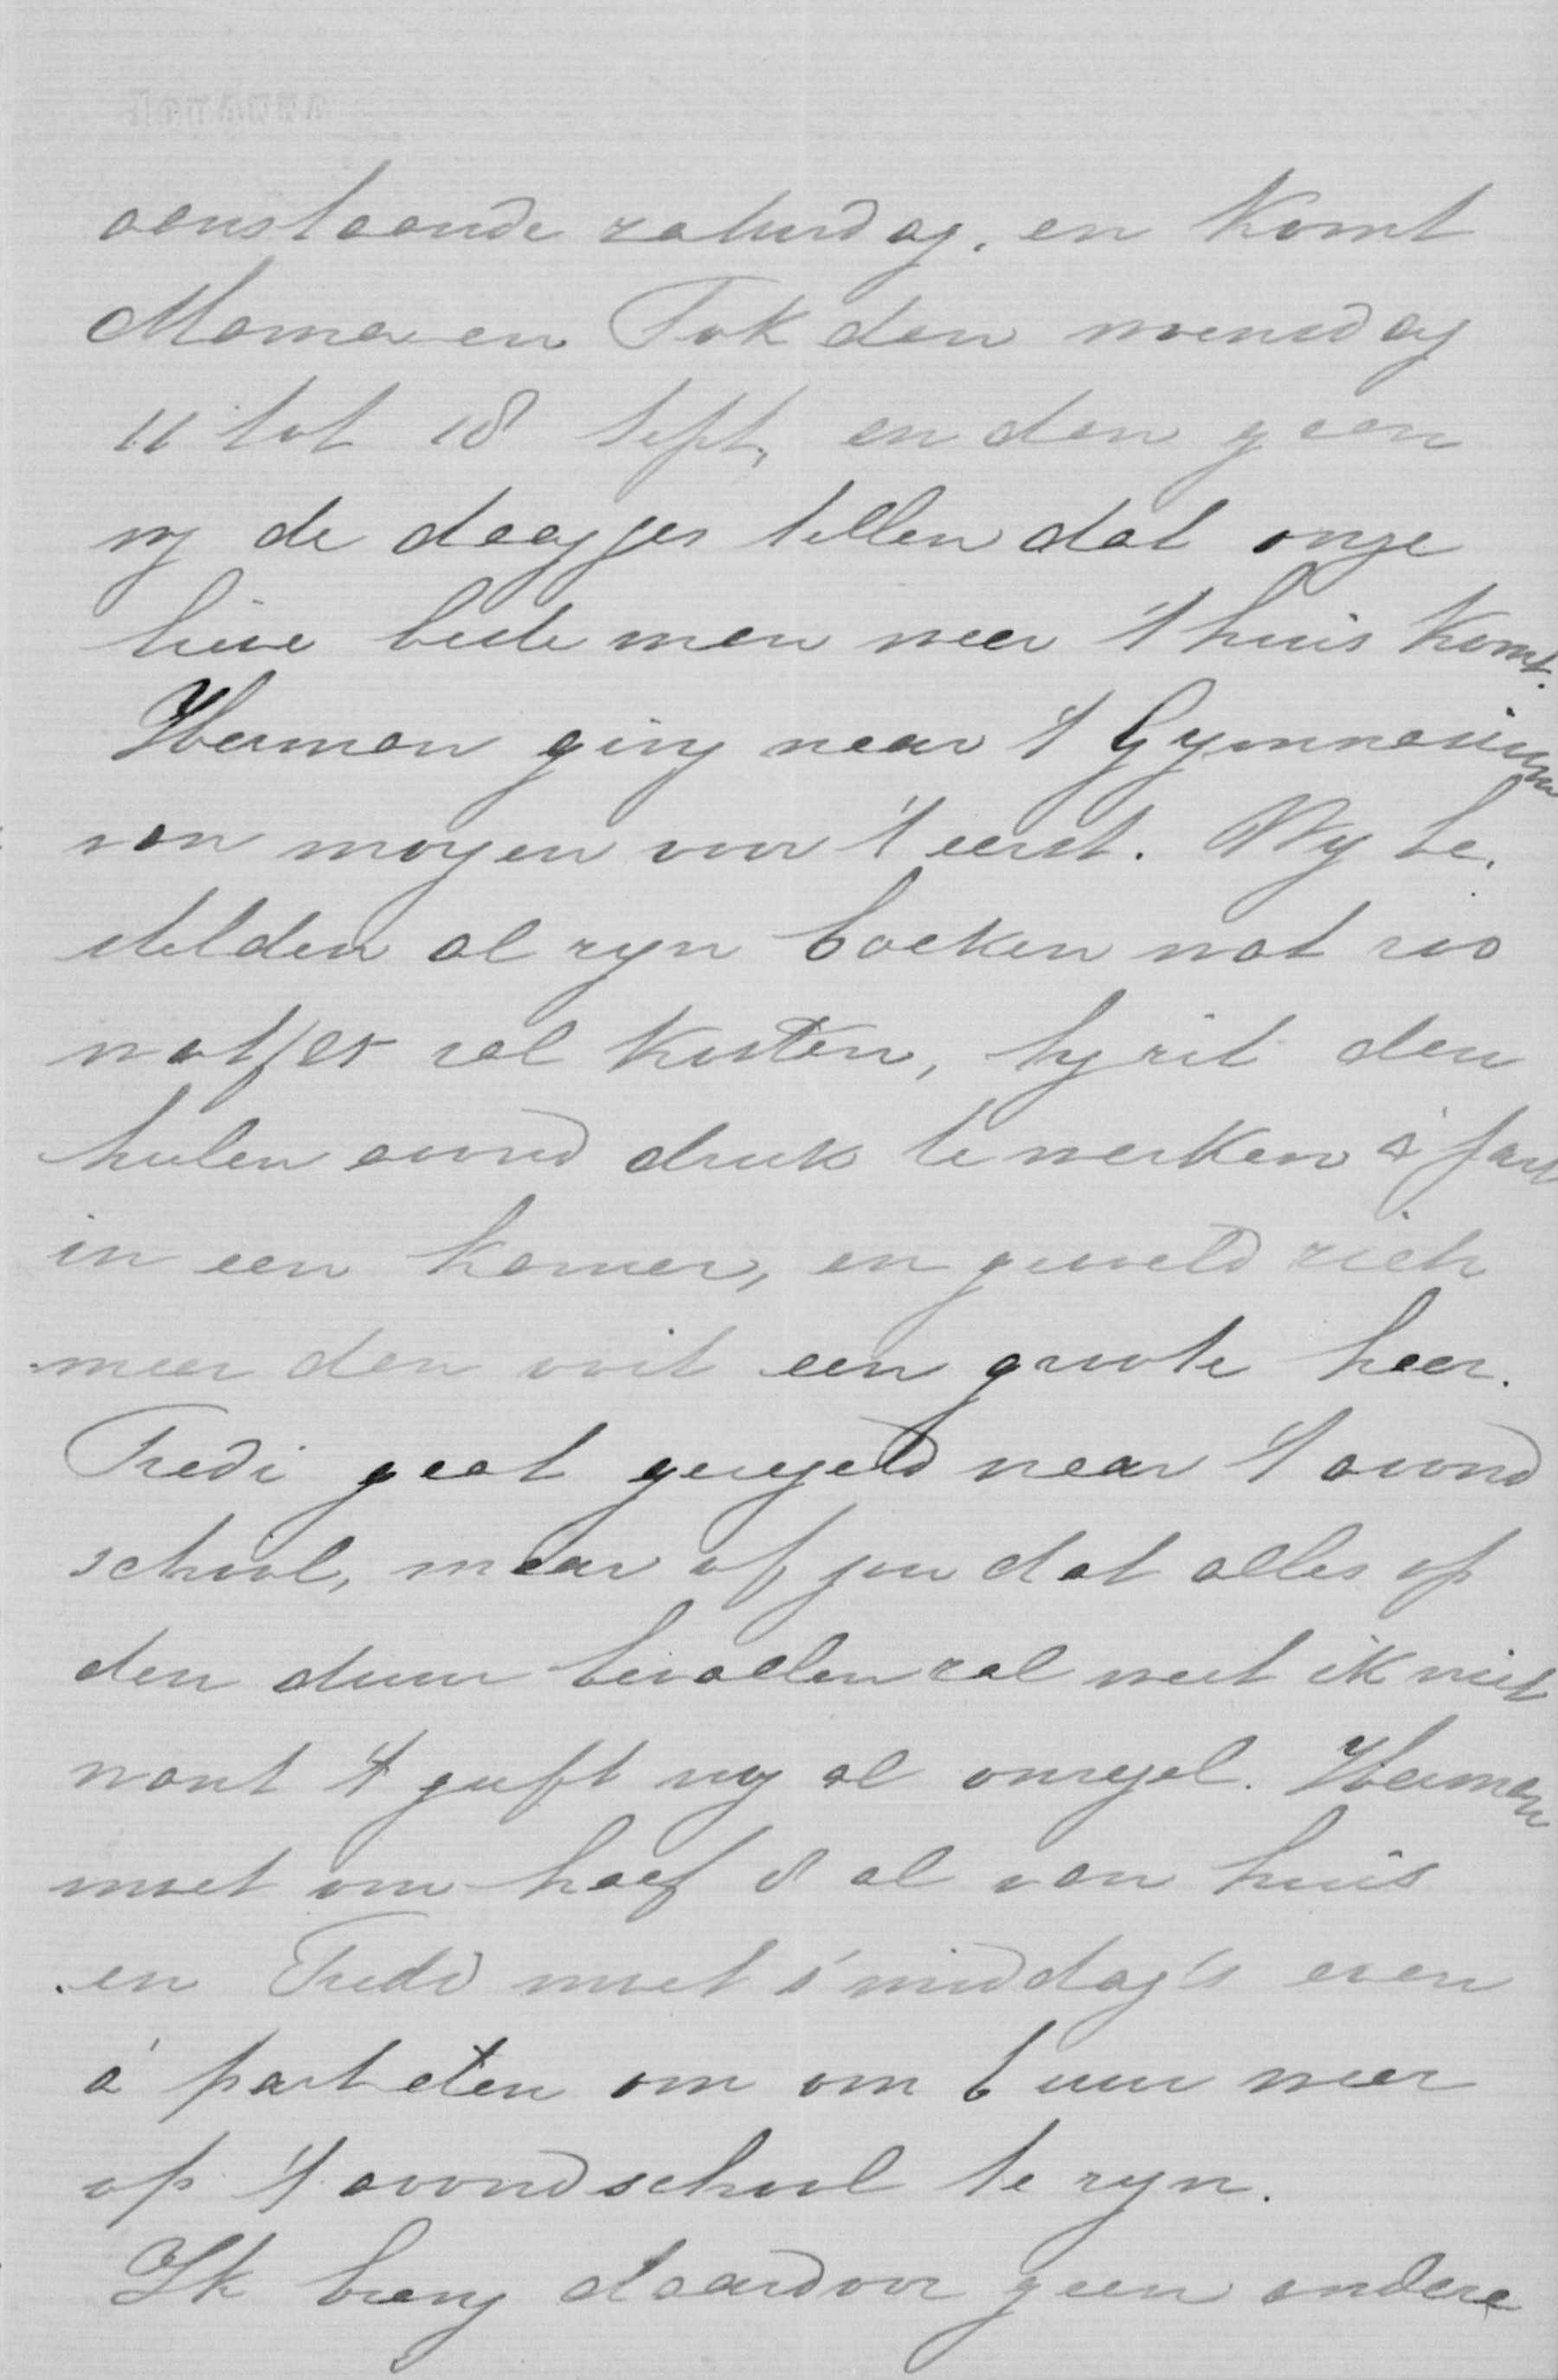 aenstaande zaturdag. en komt
Mama en Tok den woensdag
11 tot 18 Sept, en dan gaan
wy de daagjes tellen dat onze
lieve beste man weer 't huis komt.
Herman ging naar 't Gymnasium
van morgen voor 't eerst. Wy be.
stelden al zyn boeken wat zoo
watjes zal kosten, hy zit den
heelen avond druk te werken à part
in een kamer, en gevoeld zich
meer dan ooit een groote heer.
Fredi gaat geregeld naar 't avond
school, maar of jou dat alles op
den duur bevallen zal weet ik niet
want 't geeft my al onregel. Herman
moet om half 8 al van huis
en Fredi moet s'middag's even
à part eten om om 6 uur weer
op 't avondschool te zyn.
Ik breng daardoor geen andere